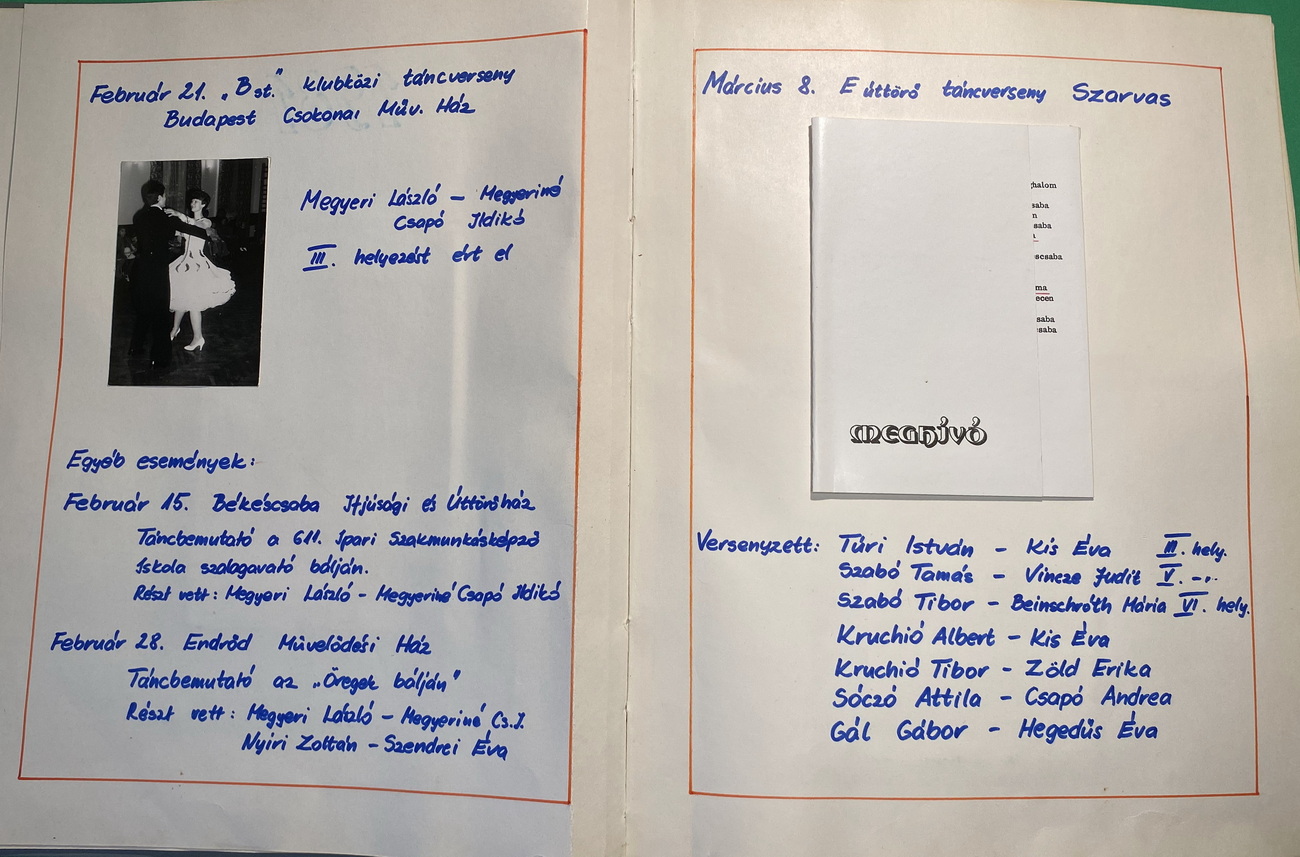 Február 21. „B st." klubközi táncverseny
Budapest Csokonai Műv. Ház
Megyeri László – Megyeriné
Csapó Ildikó
III. helyezést ért el
Egyéb események:
Február 15. Békéscsaba Ifjúsági és Úttörőház
Táncbemutató a 611. Ipari Szakmunkásképző
Iskola szalagavató bálján.
Részt vett: Megyeri László – Megyeriné Csapó Ildikó
Február 28. Endrőd Művelődési Ház
Táncbemutató az „Öregek bálján"
Részt vett: Megyeri László – Megyeriné Cs. I.
Nyíri Zoltán – Szendrei Éva
Március 8. E úttörő táncverseny Szarvas
halom
saba
n
saba
scsaba
ma
ecen
saba
saba
MEGHÍVÓ
Versenyzett: Túri István – Kis Éva III. hely.
Szabó Tamás – Vincze Judit V. -"-
Szabó Tibor – Beinschróth Mária VI. hely.
Kruchió Albert – Kis Éva
Kruchió Tibor – Zöld Erika
Sóczó Attila – Csapó Andrea
Gál Gábor – Hegedűs Éva